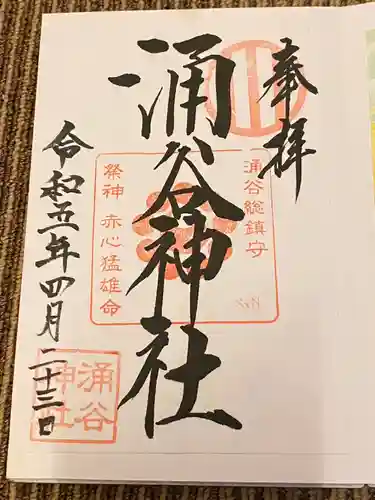 奉拝
涌谷神社
涌谷総鎮守
祭神 赤心猛雄命
令和五年四月二十三日
涌谷
神社